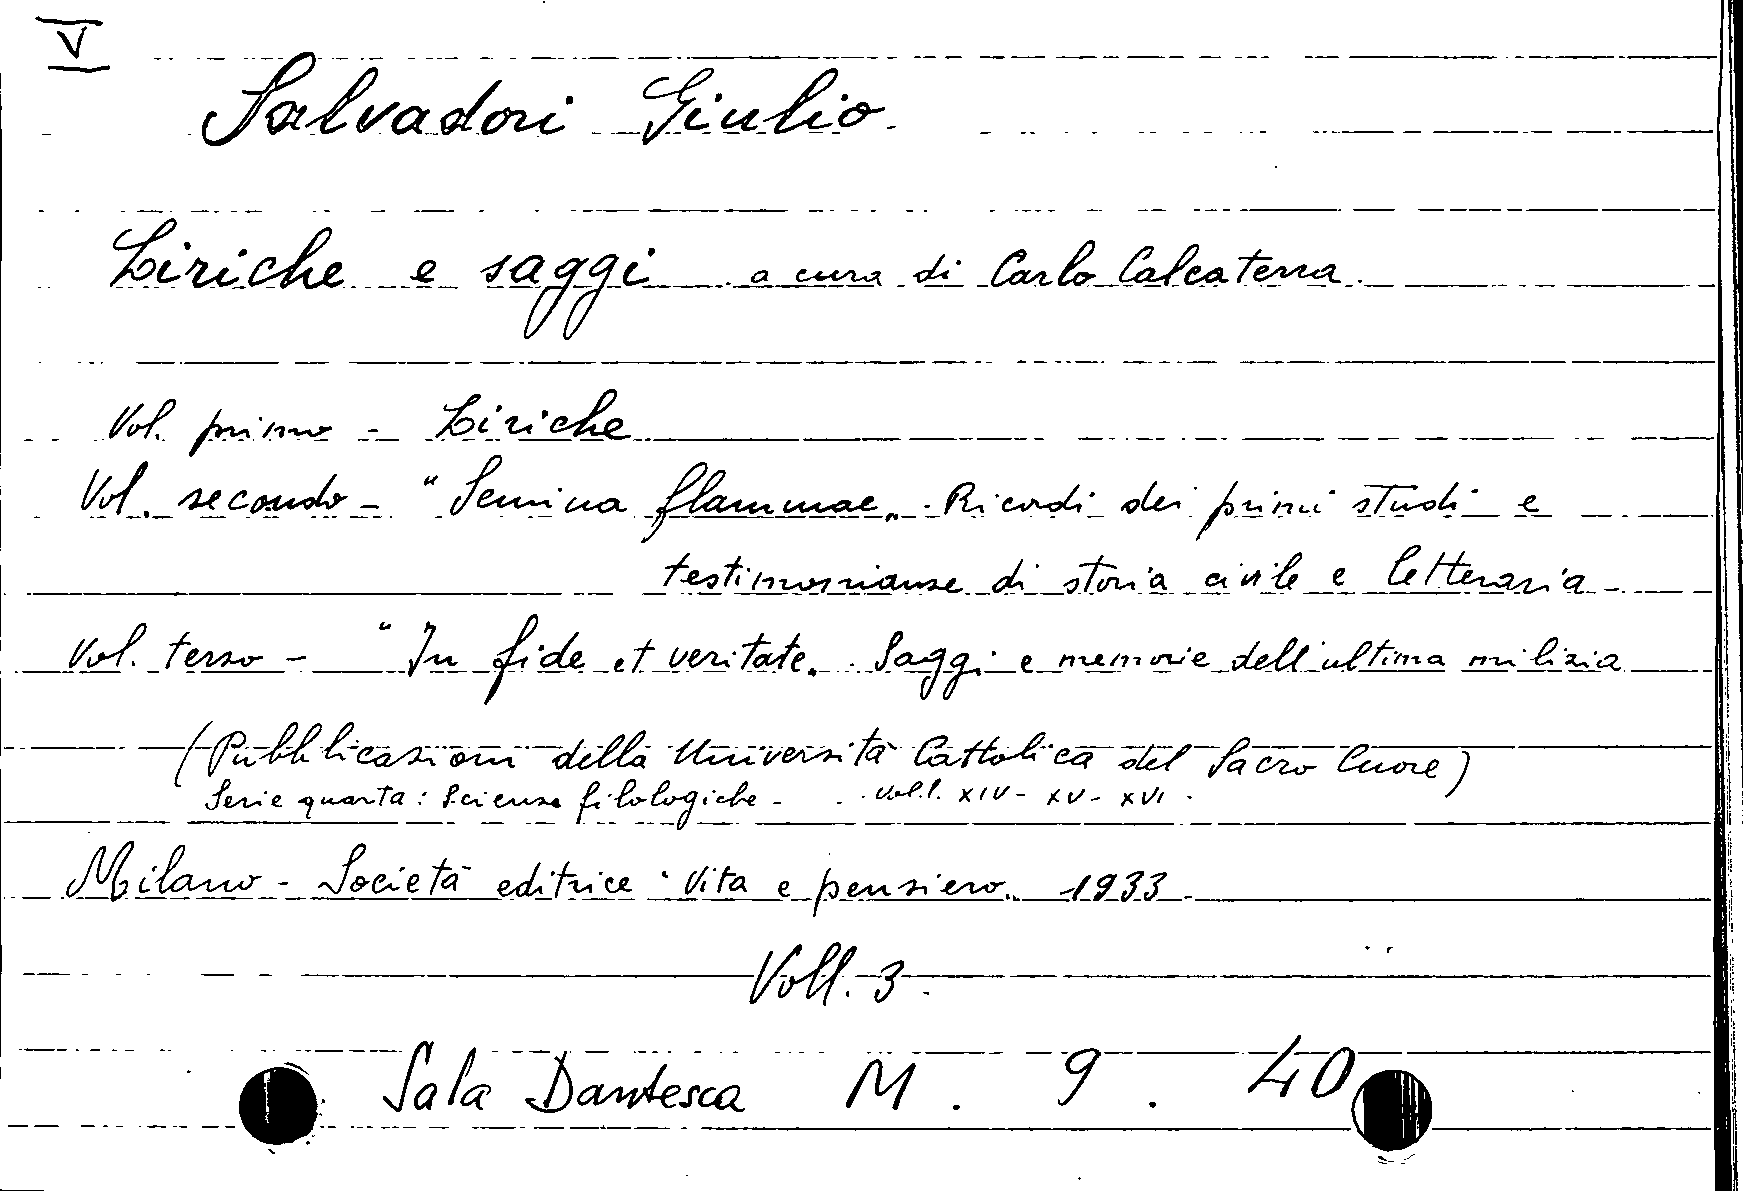 V
Salvadori Giulio.
Liriche e saggi a cura di Carlo Calcaterra.
Vol. primo - Liriche
Vol. secondo - "Semina flammae„. Ricordi dei primi studi e
testimonianze di storia civile e letteraria -
Vol. terzo - "In fide et veritate„. Saggi e memorie dell'ultima milizia
(Pubblicazioni della Università Cattolica del Sacro Cuore)
Serie quarta: Scienze filologiche - Voll. XIV - XV - XVI.
Milano - Società editrice "Vita e pensiero„ 1933.
Voll. 3.
Sala Dantesca M. 9. 40